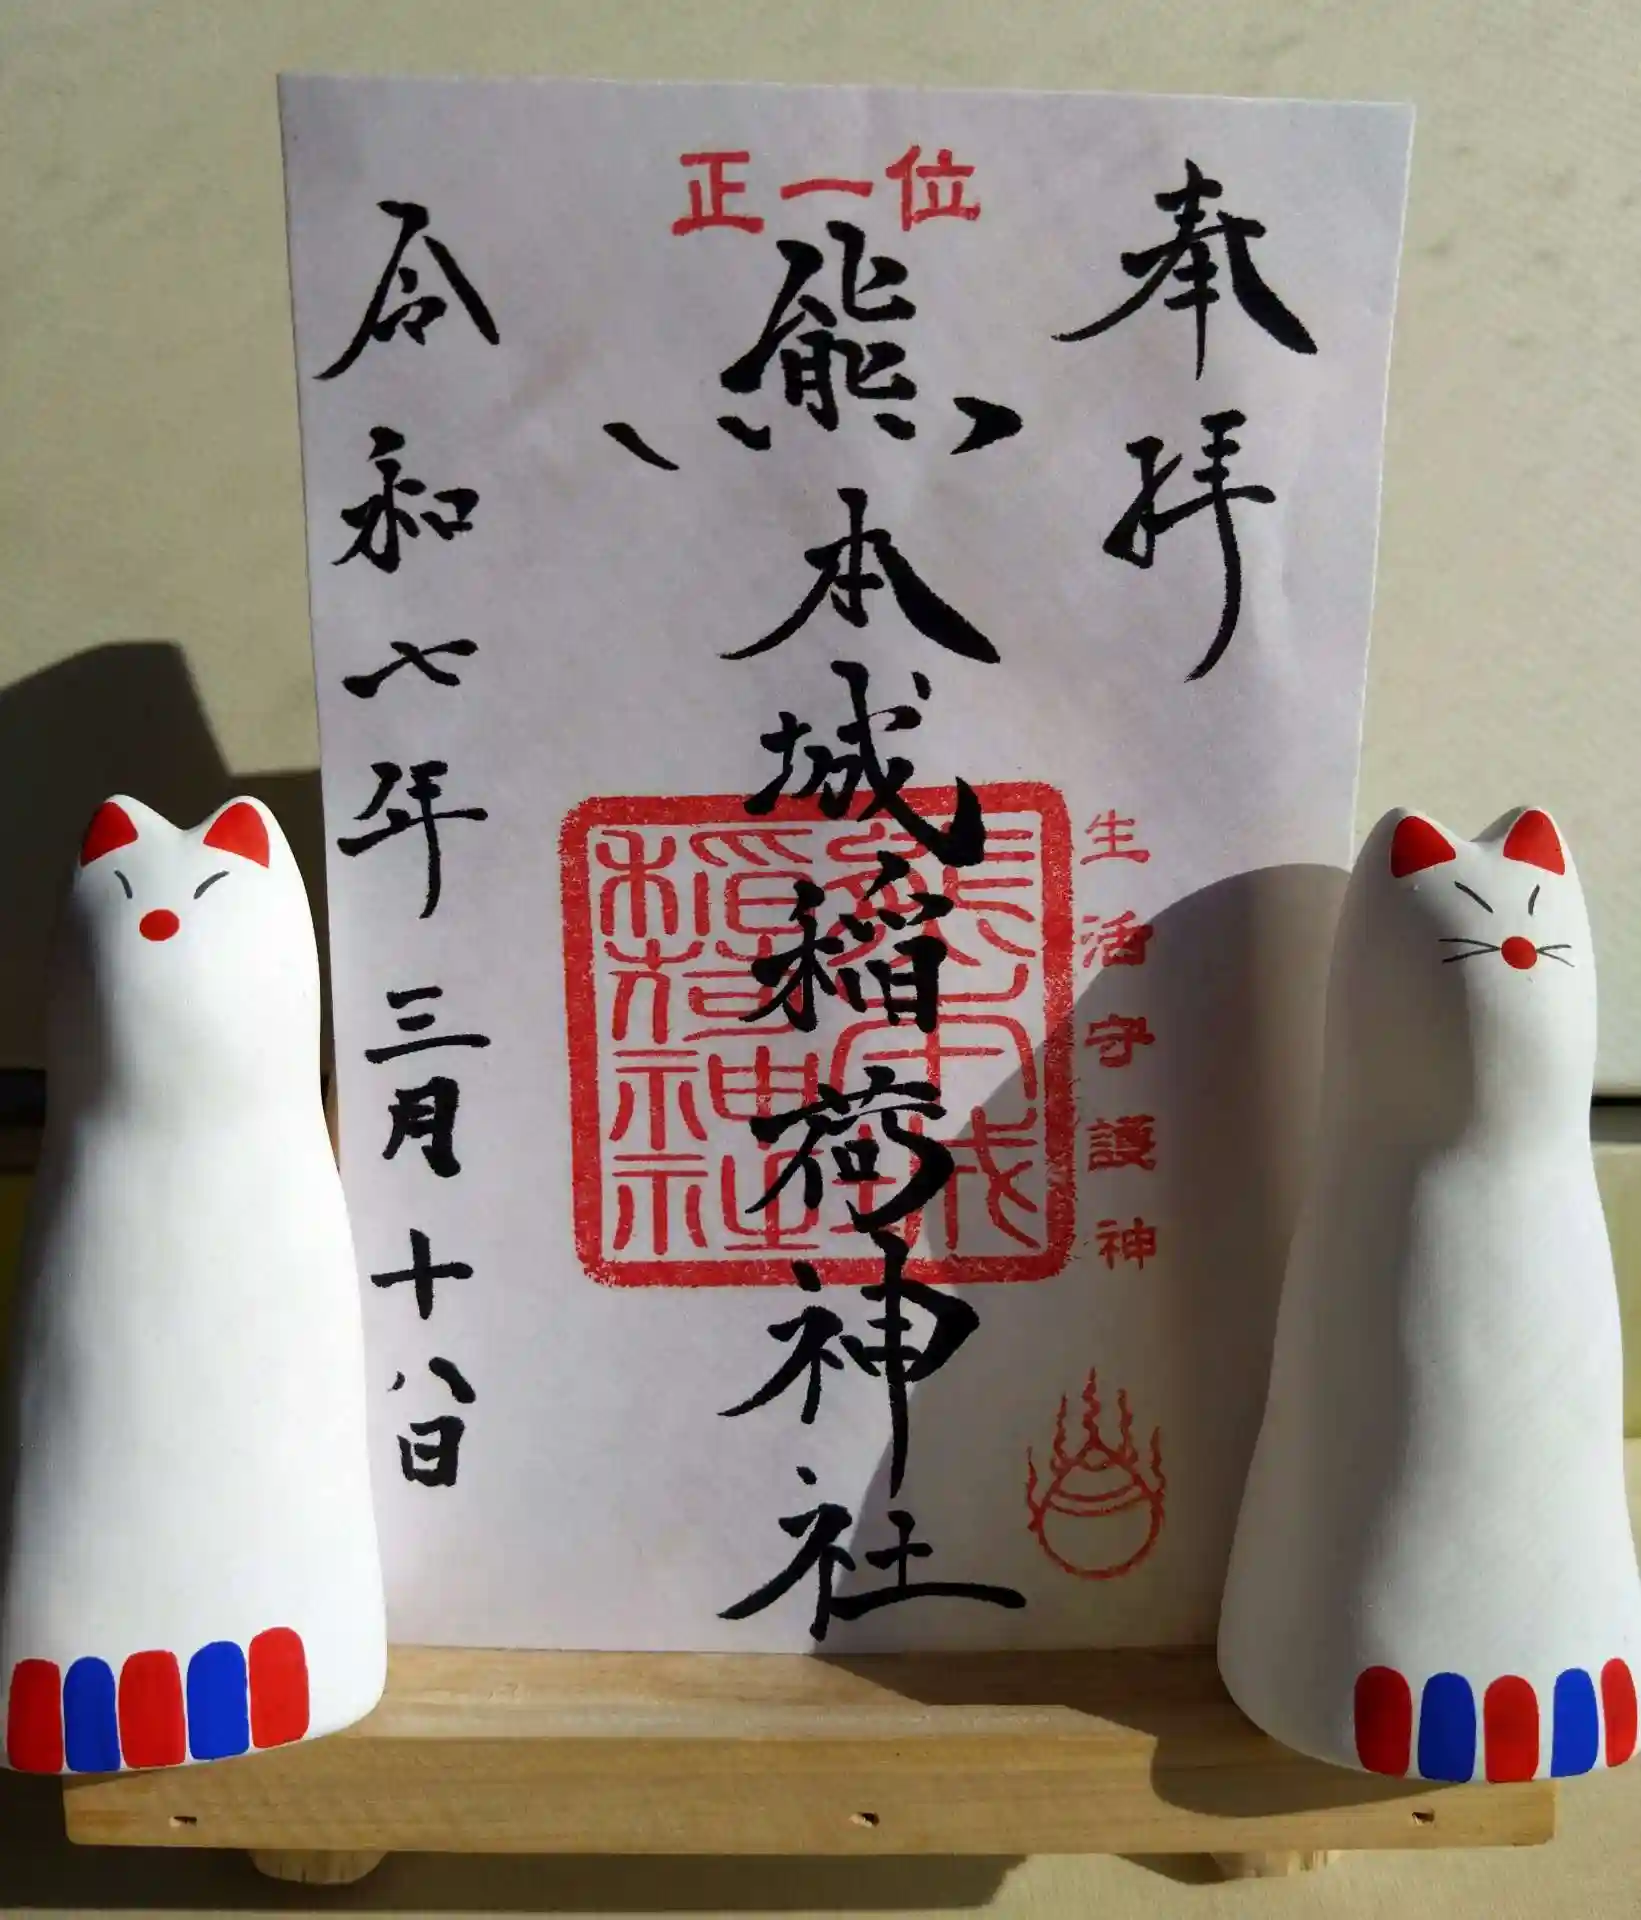 奉拝
正一位
熊本城稲荷神社
生活守護神
熊本城稲荷神社
令和七年三月十八日